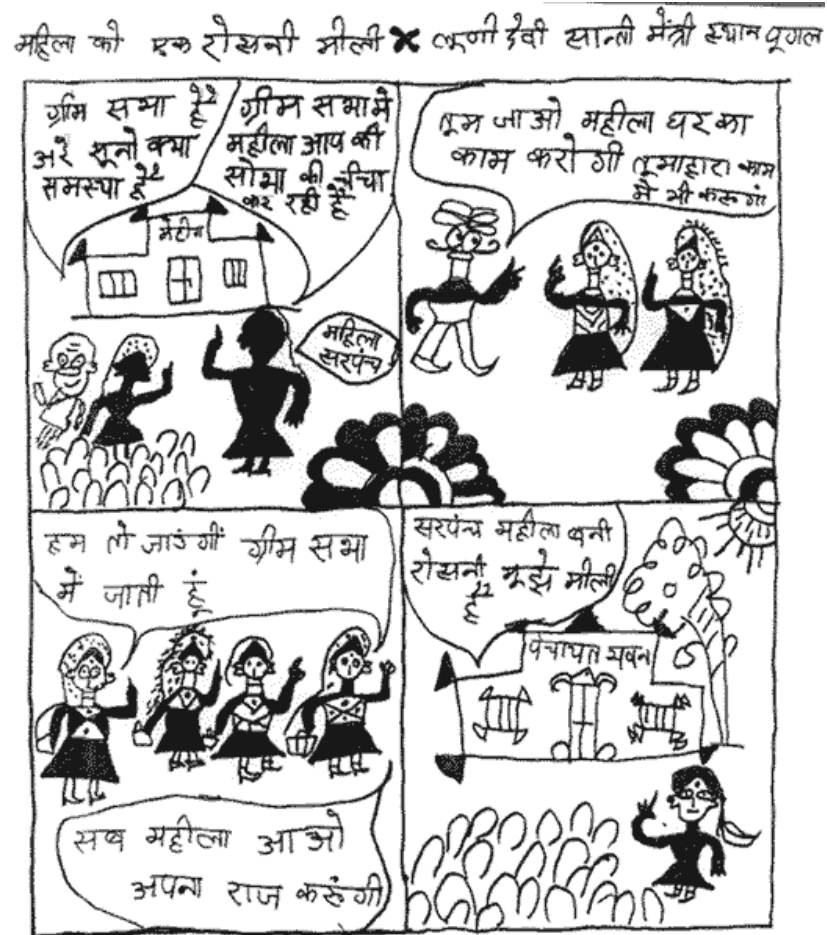 महिला को एक रोसनी मीली × लूणी देवी सान्ती मेंत्री स्थान पूगल
ग्रीम सभा है
अरे सूनो क्या
समस्या है
ग्रीम सभा मे
महीला आप की
सोभा की र्चचा
कर रही हैं
मेहीन
महिला
सरपंच
तूम जाओ महीला घर का
काम करोगी तूमाहारा काम
मे भी करूगां
हम तो जाउंगीं ग्रीम सभा
में जाती हूं
सब महीला आओ
अपना राज करूंगी
सरपंच महीला बनी
रोसनी मूझे मीली
है
पंचायत भवन